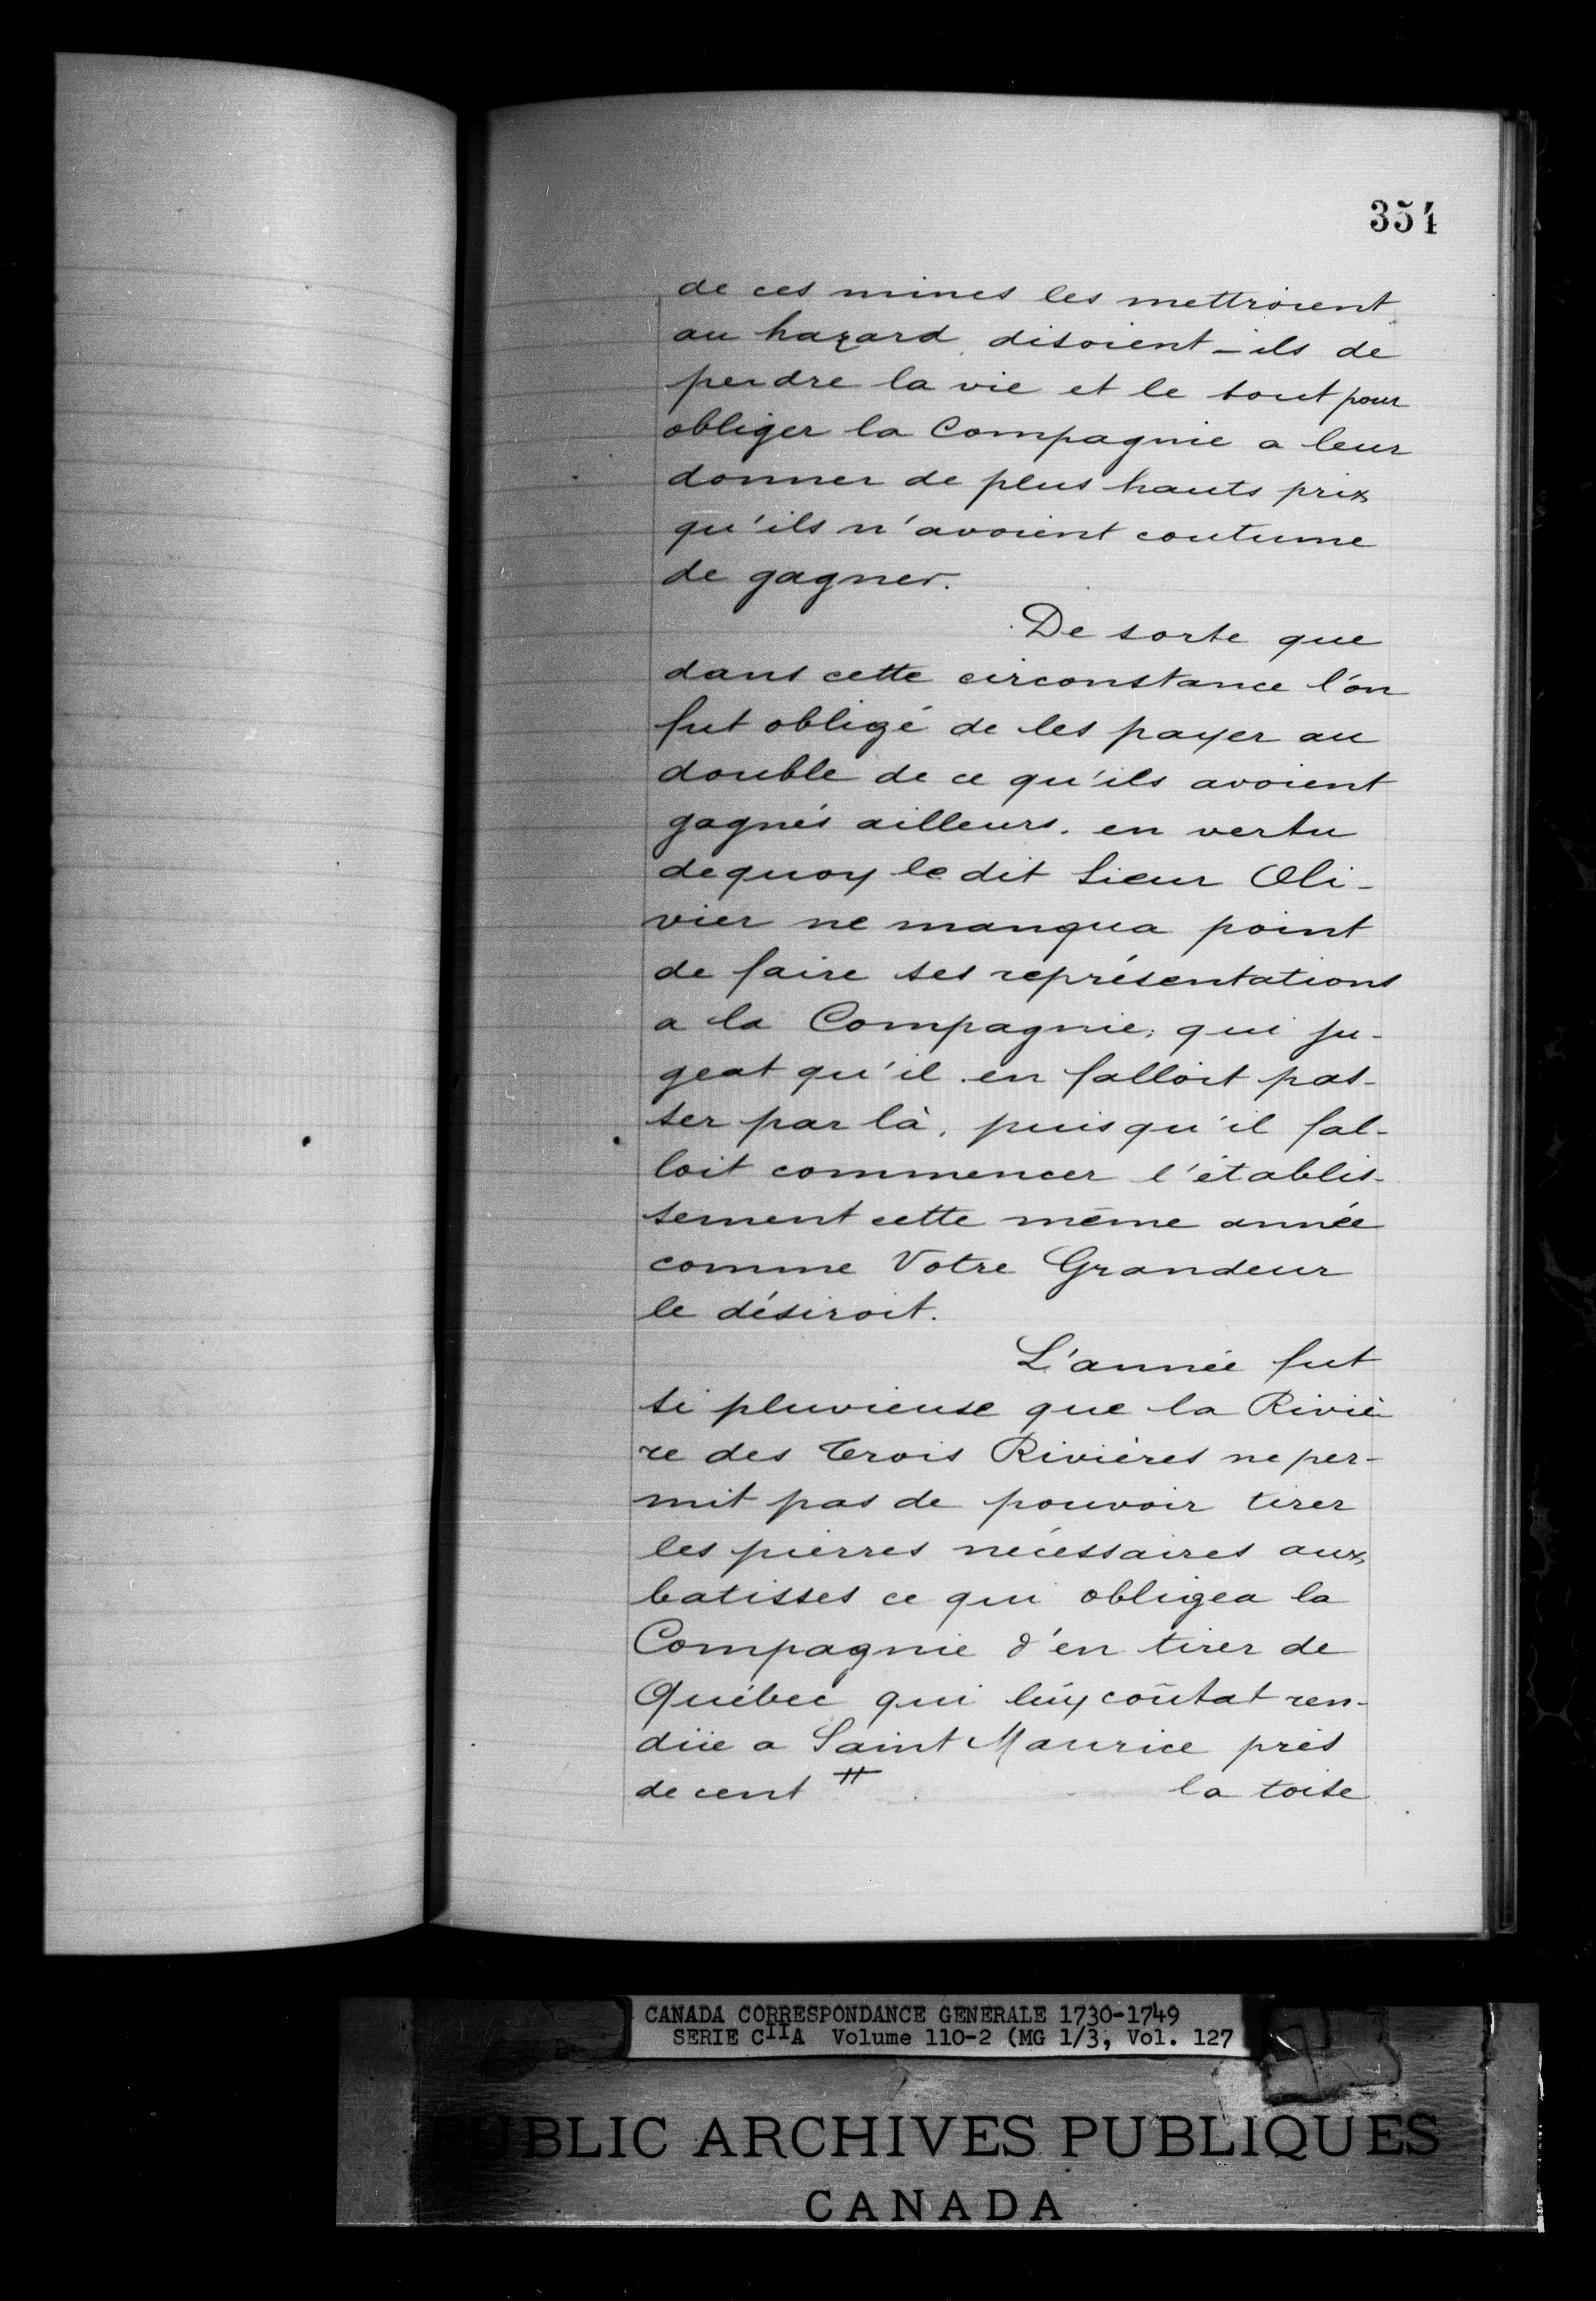 354
de ces mines les mettroient
au hazard disoient-ils de
perdre la vie et le tout pour
obliger la Compagnie a leur
donner de plus hauts prix
qu'ils n'avoient coutume
de gagner.
De sorte que
dans cette circonstance l'on
fut obligé de les payer au
double de ce qu'ils avoient
gagnés ailleurs. en vertu
de quoy le dit Sieur Oli-
vier ne manqua point
de faire ses représentations
a la Compagnie, qui ju-
geat qu'il en falloit pas-
ser par là, puis qu'il fal-
loit commencer l'établis-
sement cette même année
comme Votre Grandeur
le désiroit.
L'année fut
si pluvieuse que la Riviè
re des Trois Rivières ne per-
mit pas de pouvoir tirer
les pierres nécessaires aux
batisses ce qui obligea la
Compagnie d'en tirer de
Québec qui lüy coûtat ren-
düe a Saint Maurice près
de cent ₶ la toise
CANADA CORRESPONDANCE GENERALE 1730-1749
SERIE CIIA Volume 110-2 (MG 1/3, Vol. 127
PUBLIC ARCHIVES PUBLIQUES
CANADA